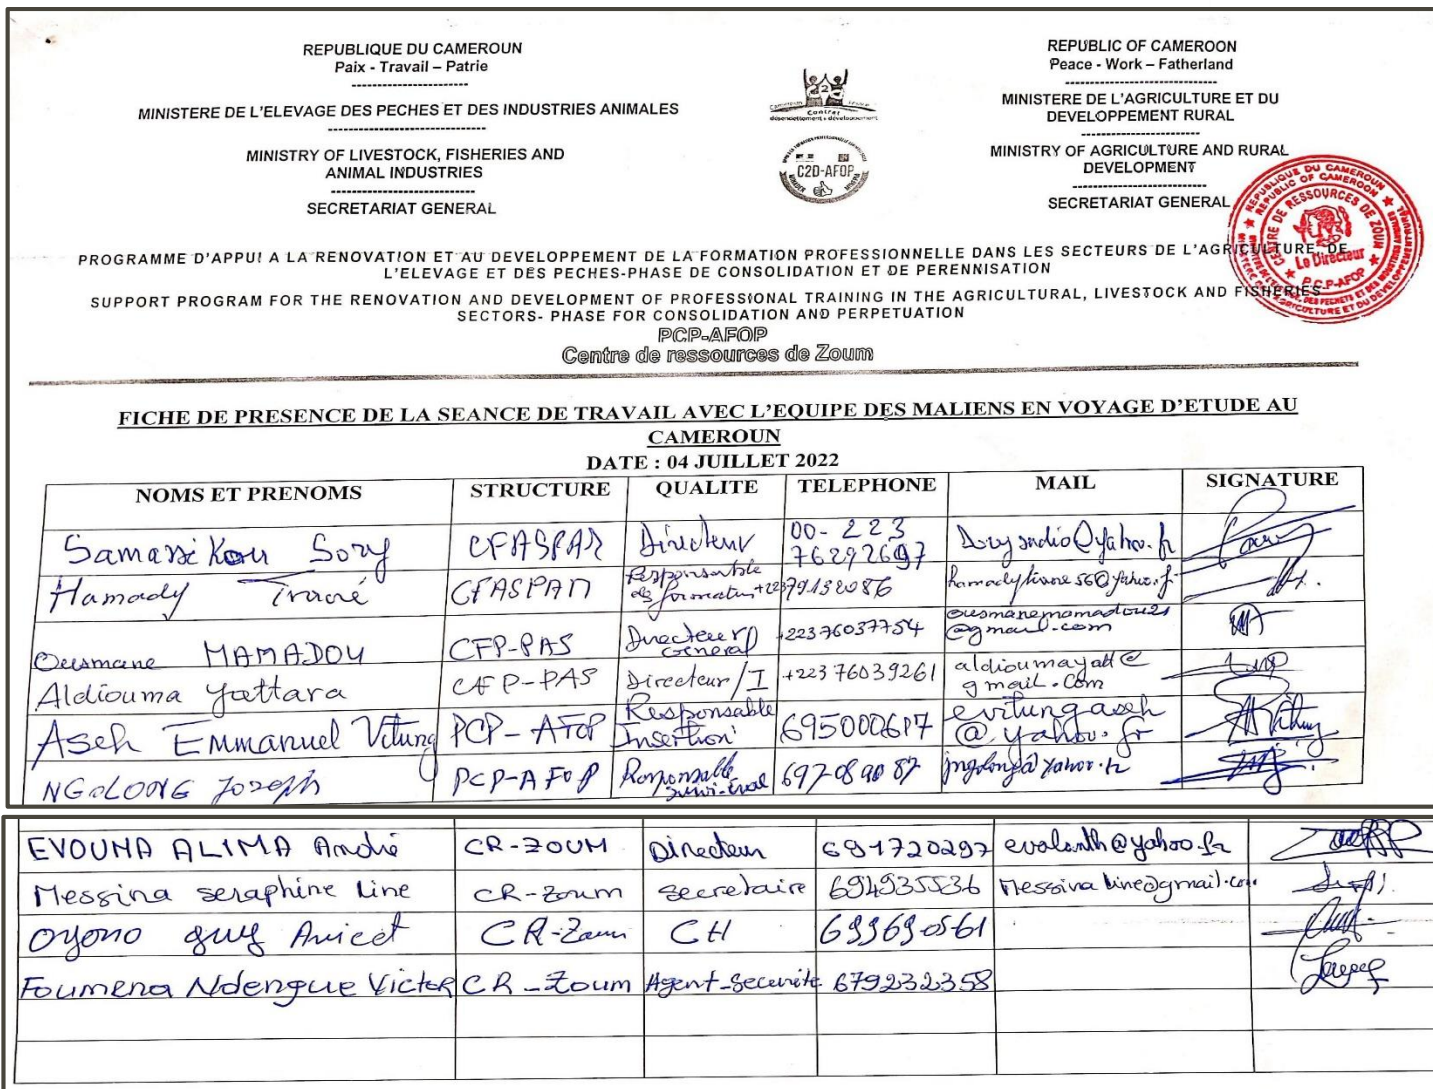 REPUBLIQUE DU CAMEROUN
Paix - Travail – Patrie
MINISTERE DE L'ELEVAGE DES PECHES ET DES INDUSTRIES ANIMALES
MINISTRY OF LIVESTOCK, FISHERIES AND
ANIMAL INDUSTRIES
SECRETARIAT GENERAL
Contrat
désendettement développement
C2D-AFOP
REPUBLIC OF CAMEROON
Peace - Work – Fatherland
MINISTERE DE L'AGRICULTURE ET DU
DEVELOPPEMENT RURAL
MINISTRY OF AGRICULTURE AND RURAL
DEVELOPMENT
SECRETARIAT GENERAL
REPUBLIQUE DU CAMEROUN
REPUBLIC OF CAMEROON
CENTRE DE RESSOURCES DE ZOUM
Le Directeur
P.C.P-AFOP
PROGRAMME D'APPUI A LA RENOVATION ET AU DEVELOPPEMENT DE LA FORMATION PROFESSIONNELLE DANS LES SECTEURS DE L'AGRICULTURE, DE
L'ELEVAGE ET DES PECHES-PHASE DE CONSOLIDATION ET DE PERENNISATION
SUPPORT PROGRAM FOR THE RENOVATION AND DEVELOPMENT OF PROFESSIONAL TRAINING IN THE AGRICULTURAL, LIVESTOCK AND FISHERIES
SECTORS- PHASE FOR CONSOLIDATION AND PERPETUATION
PCP-AFOP
Centre de ressources de Zoum
FICHE DE PRESENCE DE LA SEANCE DE TRAVAIL AVEC L'EQUIPE DES MALIENS EN VOYAGE D'ETUDE AU
CAMEROUN
DATE : 04 JUILLET 2022
NOMS ET PRENOMS STRUCTURE QUALITE TELEPHONE MAIL SIGNATURE
Samassekou Sory CFASPAN Directeur 00-223 76292697
Hamady Traoré CFASPAN Responsable de formation
Ousmane MAMADOU CFP-PAS Directeur General +22376037754 ousmanemamadou21@gmail.com
Aldiouma Yattara CFP-PAS Directeur/I +22376039261 aldioumayatt@gmail.com
Aseh Emmanuel Vitung PCP-AFOP Responsable Insertion 695000617 evitungaseh@yahoo.fr
NGOLONG Joseph PCP-AFOP Responsable suivi-eval
EVOUNA ALIMA André CR-ZOUM Directeur 691720297 evalanth@yahoo.fr
Messina seraphine Line CR-Zoum secretaire 694935536 Messinaline@gmail.com
Oyono guy Anicet CR-Zoum CH 699690561
Foumena Ndengue Victor CR-Zoum Agent-Securité 679232358